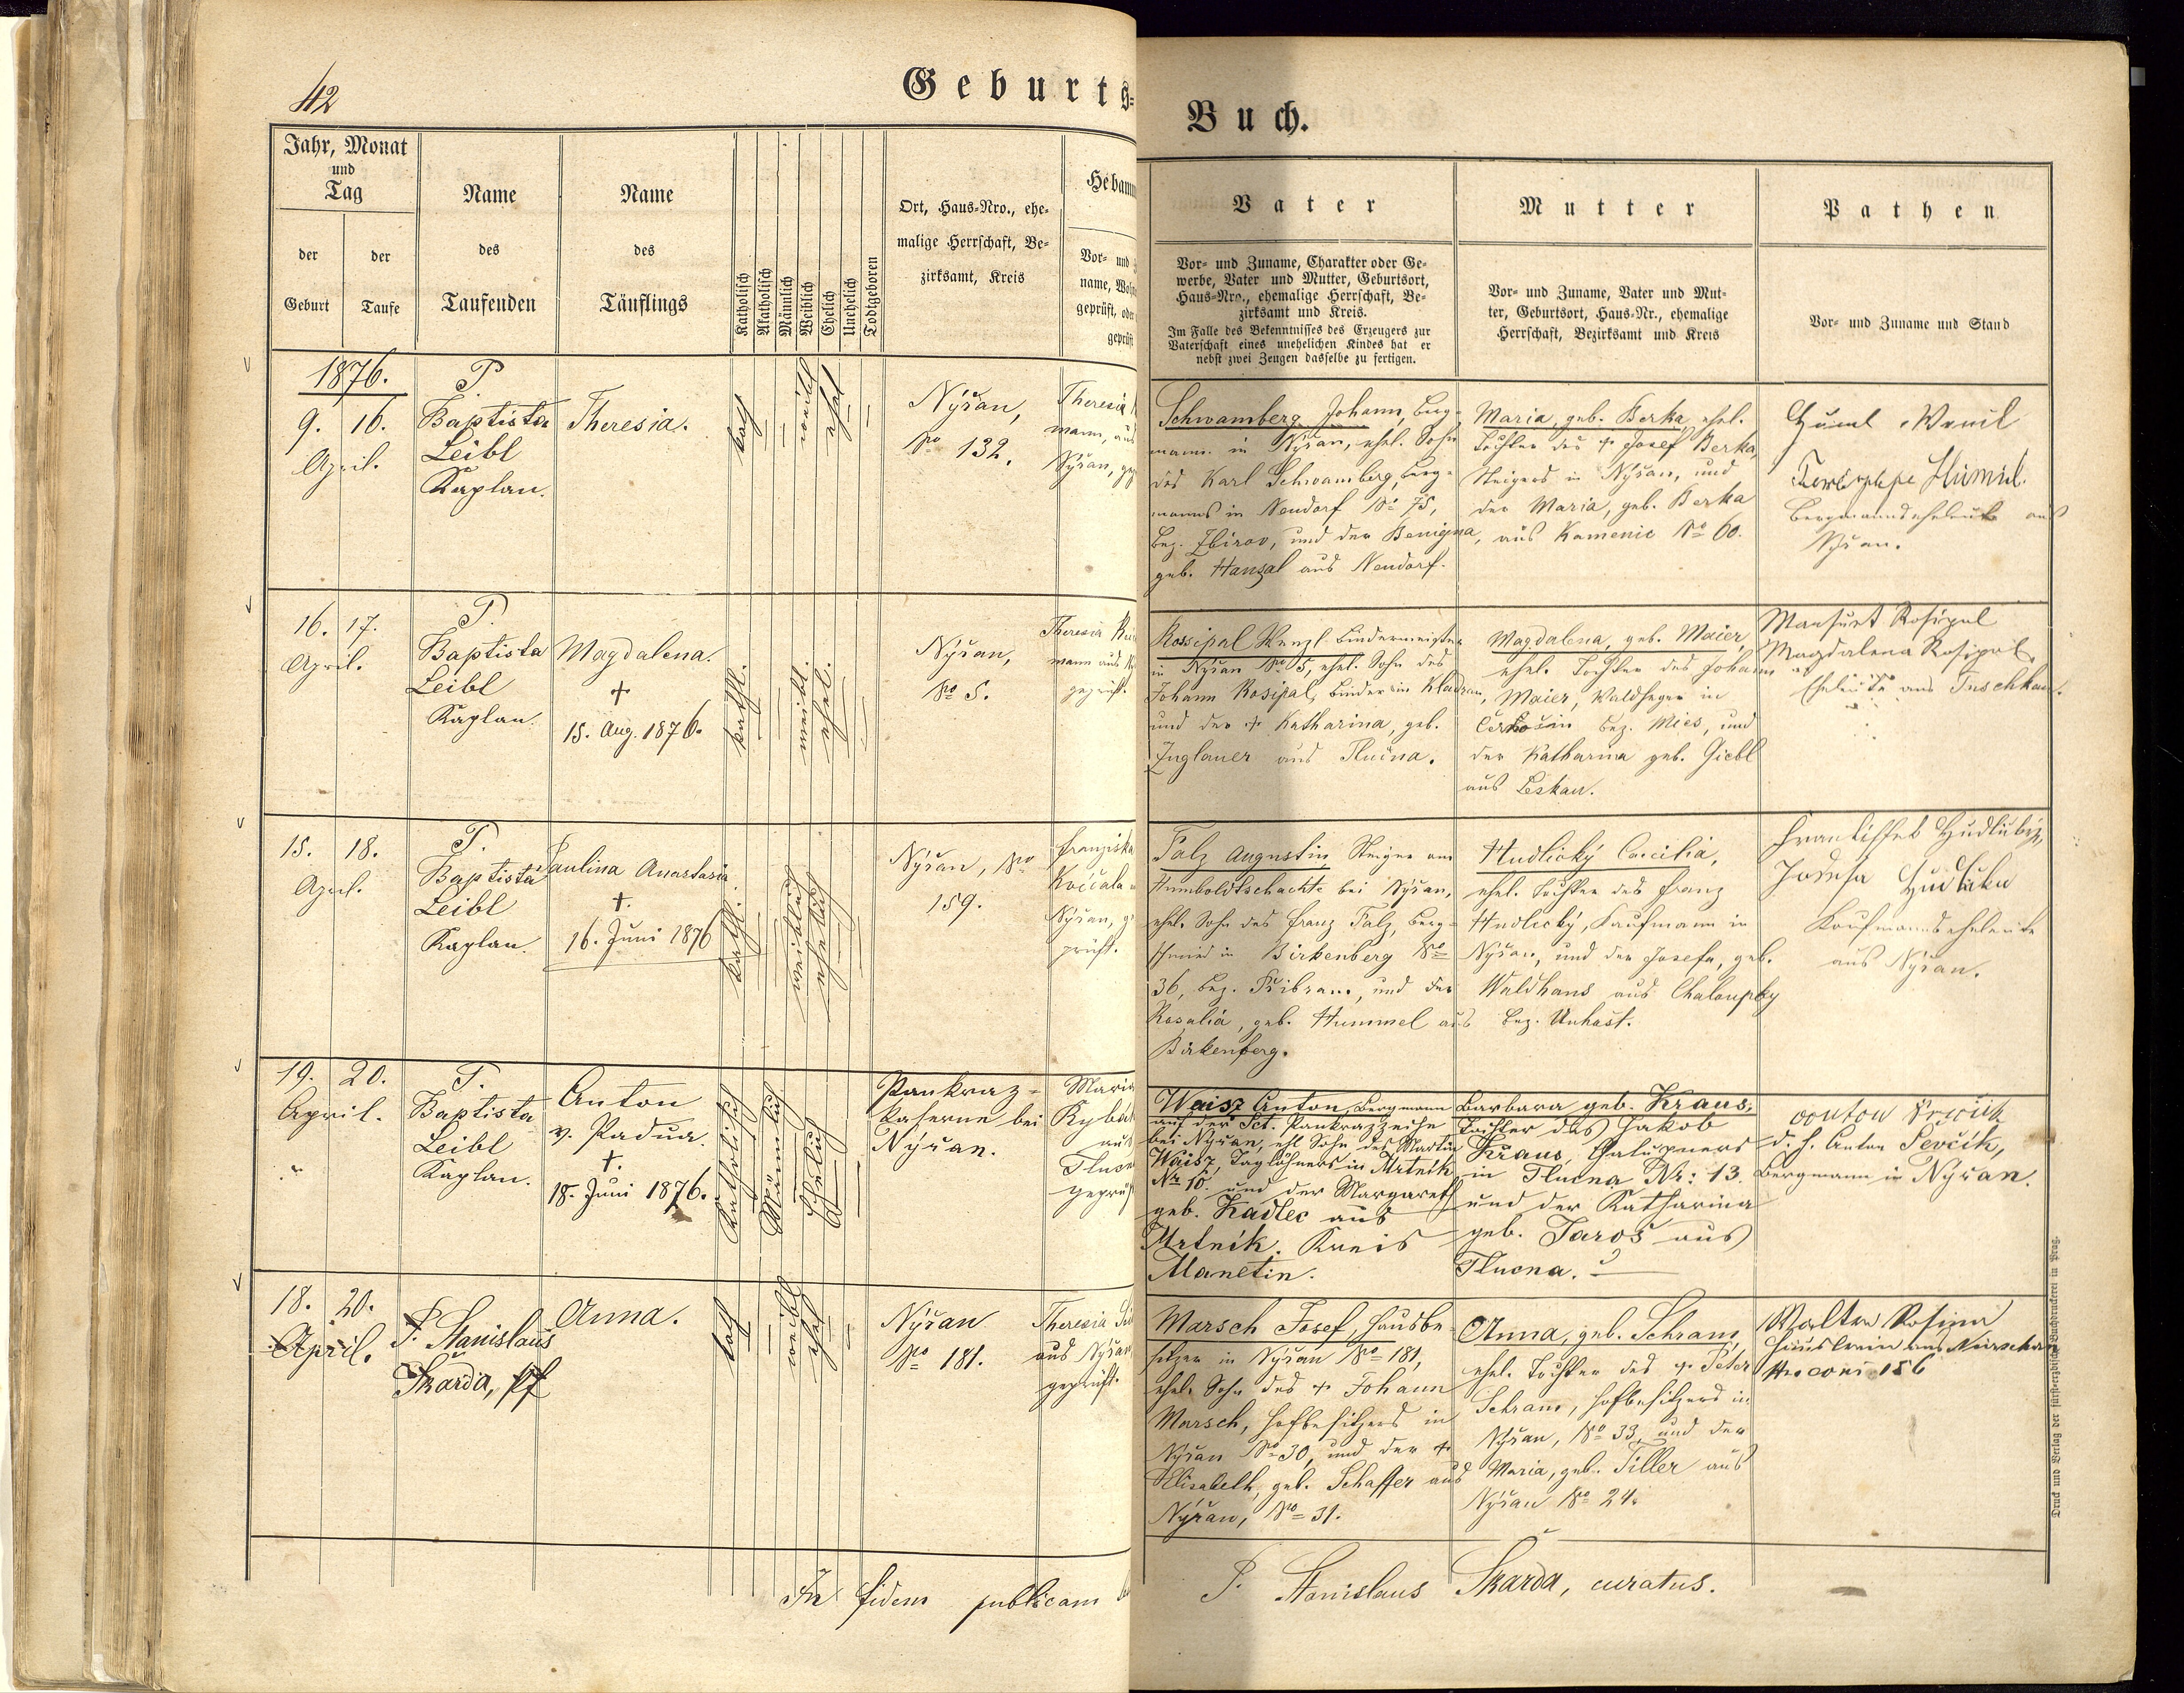 42
Geburts-
Buch.
Jahr, Monat
und
Tag
der
Geburt
der
Taufe
Name
des
Taufenden
Name
des
Täuflings
Katholisch
Akatholisch
Männlich
Weiblich
Ehelich
Unehelich
Todtgeboren
Ort, Haus-Nro., ehe-
malige Herrschaft, Be-
zirksamt, Kreis
Hebamm
Vor- und
name, Woh
geprüft, oder
geprüft
Vater
Vor- und Zuname, Charakter oder Ge-
werbe, Vater und Mutter, Geburtsort,
Haus-Nro., ehemalige Herrschaft, Be-
zirksamt und Kreis.
Im Falle des Bekenntnisses des Erzeugers zur
Vaterschaft eines unehelichen Kindes hat er
nebst zwei Zeugen dasselbe zu fertigen.
Mutter
Vor- und Zuname, Vater und Mut-
ter, Geburtsort, Haus-Nr., ehemalige
Herrschaft, Bezirksamt und Kreis
Pathen
Vor- und Zuname und Stand
1876.
9. 16.
April.
P.
Baptista
Leibl
Kaplan.
Theresia.
kath
weibl
ehel
Nýřan,
No 132.
Theresia
mann, aus
Nýřan, gep
Schwamberg Johann, Berg-
mann in Nýřan, ehel. Sohn
des Karl Schwamberg, Berg-
manns in Neudorf No 75,
Bez. Zbirov, und der Benigna,
geb. Hanzal aus Neudorf.
Maria, geb. Berka, ehel.
Tochter des + Josef Berka,
Steigers in Nýřan, und
der Maria, geb. Berka
aus Kamenic No 60.
Huml
Bergmannseheleute aus
Nýřan.
16. 17.
April.
P.
Baptista
Leibl
Kaplan.
Magdalena.
+
15. Aug. 1876.
kathl.
weibl.
ehel.
Nýřan,
No 5.
Theresia
mann aus
geprüft.
Rossipal Wenzl Bindermeister
in Nýřan No 5, ehel. Sohn des
Johann Rosipal, Binder in Kladrau,
und der + Katharina, geb.
Inglauer aus Tlučna.
Magdalena, geb. Maier,
ehel. Tochter des Johann
Maier, Waldheger in
Bez. Mies, und
der Katharina geb. Giebl
aus Leskau.
Rosipal
Magdalena Rosipal
Eheleute aus Tuschkau.
15. 18.
April.
P.
Baptista
Leibl
Kaplan.
Paulina Anastasia
+.
16. Juni 1876
kathl.
weiblich
ehelich
Nýřan, No
159.
Franziska
Kočcala
Nýřan, ge
prüft.
Falz Augustin Steiger am
Humboldtschachte bei Nýřan,
ehel. Sohn des Franz Falz, Berg-
schmied in Birkenberg No
36, Bez. Přibram, und der
Rosalia, geb. Hummel aus
Birkenberg.
Hudlický Caecilia,
ehel. Tochter des Franz
Hudlický, Kaufmann in
Nýřan, und der Josefa, geb.
Waldhans aus Chaloupky
Bez. Unhošt.
Josefa
Kaufmannseheleute
aus Nýřan.
19. 20.
April.
P.
Baptista
Leibl
Kaplan.
Anton
v. Padua.
+.
18. Juni 1876.
Katholisch
Männlich
Ehelich
Pankraz-
kaserne bei
Nýřan.
Maria
aus
geprüf
Waisz Anton, Bergmann
auf der Sct. Pankrazzeche
bei Nýřan, ehl. Sohn des Martin
Waisz, Taglöhners in Mrtnik
Nr 10. und der Margareth
geb. Kadlec aus
Mrtnik. Kreis
Manetin.
Barbara geb. Kraus,
Tochter des Jakob
Kraus, Chalupners
in Tlucna Nr: 13.
und der Katharina
geb. Jaroš aus
Tlucna.
Anton
d. h. Anton Ševčik,
Bergmann in Nýřan.
18. 20.
April.
P. Stanislaus
Škarda, Pf
Anna.
kath
weibl
ehel
Nýřan
No 181.
Theresia
aus Nýřan
geprüft.
Marsch Josef, Hausbe-
sitzer in Nýřan No 181,
ehel. Sohn des + Johann
Marsch, Hofbesitzers in
Nýřan No 30, und der +
Elisabeth, geb. Schaffer aus
Nýřan, No 31.
Anna, geb. Schram,
ehel. Tochter des + Peter
Schram, Hofbesitzers in
Nýřan, No 33, und der
Maria, geb. Tiller aus
Nýřan No 24.
Rosina
aus Nürschan
156
In fidem publicam
P. Stanislaus Škarda, curatus.
Druck und Verlag der fürst-erzbischöfl. Buchdruckerei in Prag.